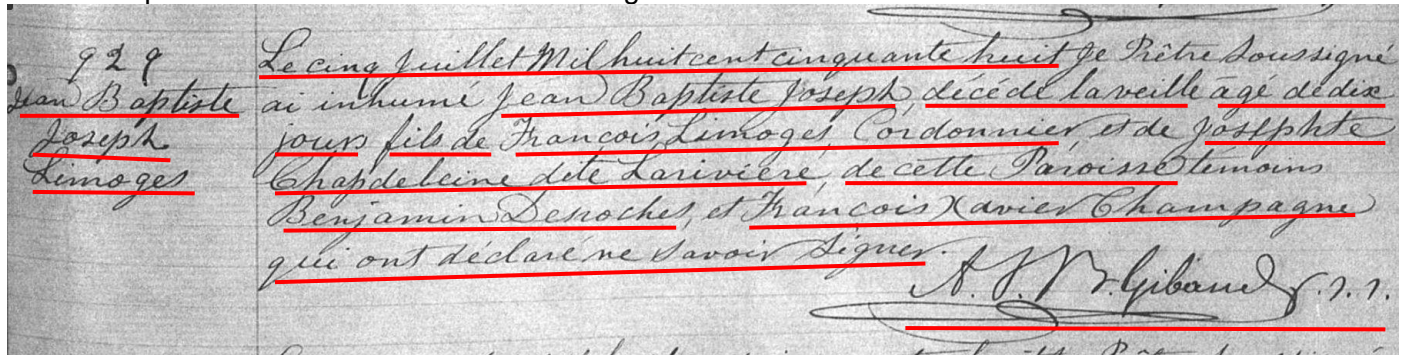 929
Jean Baptiste
Joseph
Limoges
Le cinq Juillet Mil huit cent cinquante huit Je Prêtre Soussigné
ai inhumé Jean Baptiste Joseph, décédé la veille âgé de dix
jours fils de François Limoges, Cordonnier et de Josephte
Chapdeleine dite Larivière, de cette Paroisse témoins
Benjamin Desroches, et François Xavier Champagne
qui ont déclaré ne savoir Signer.